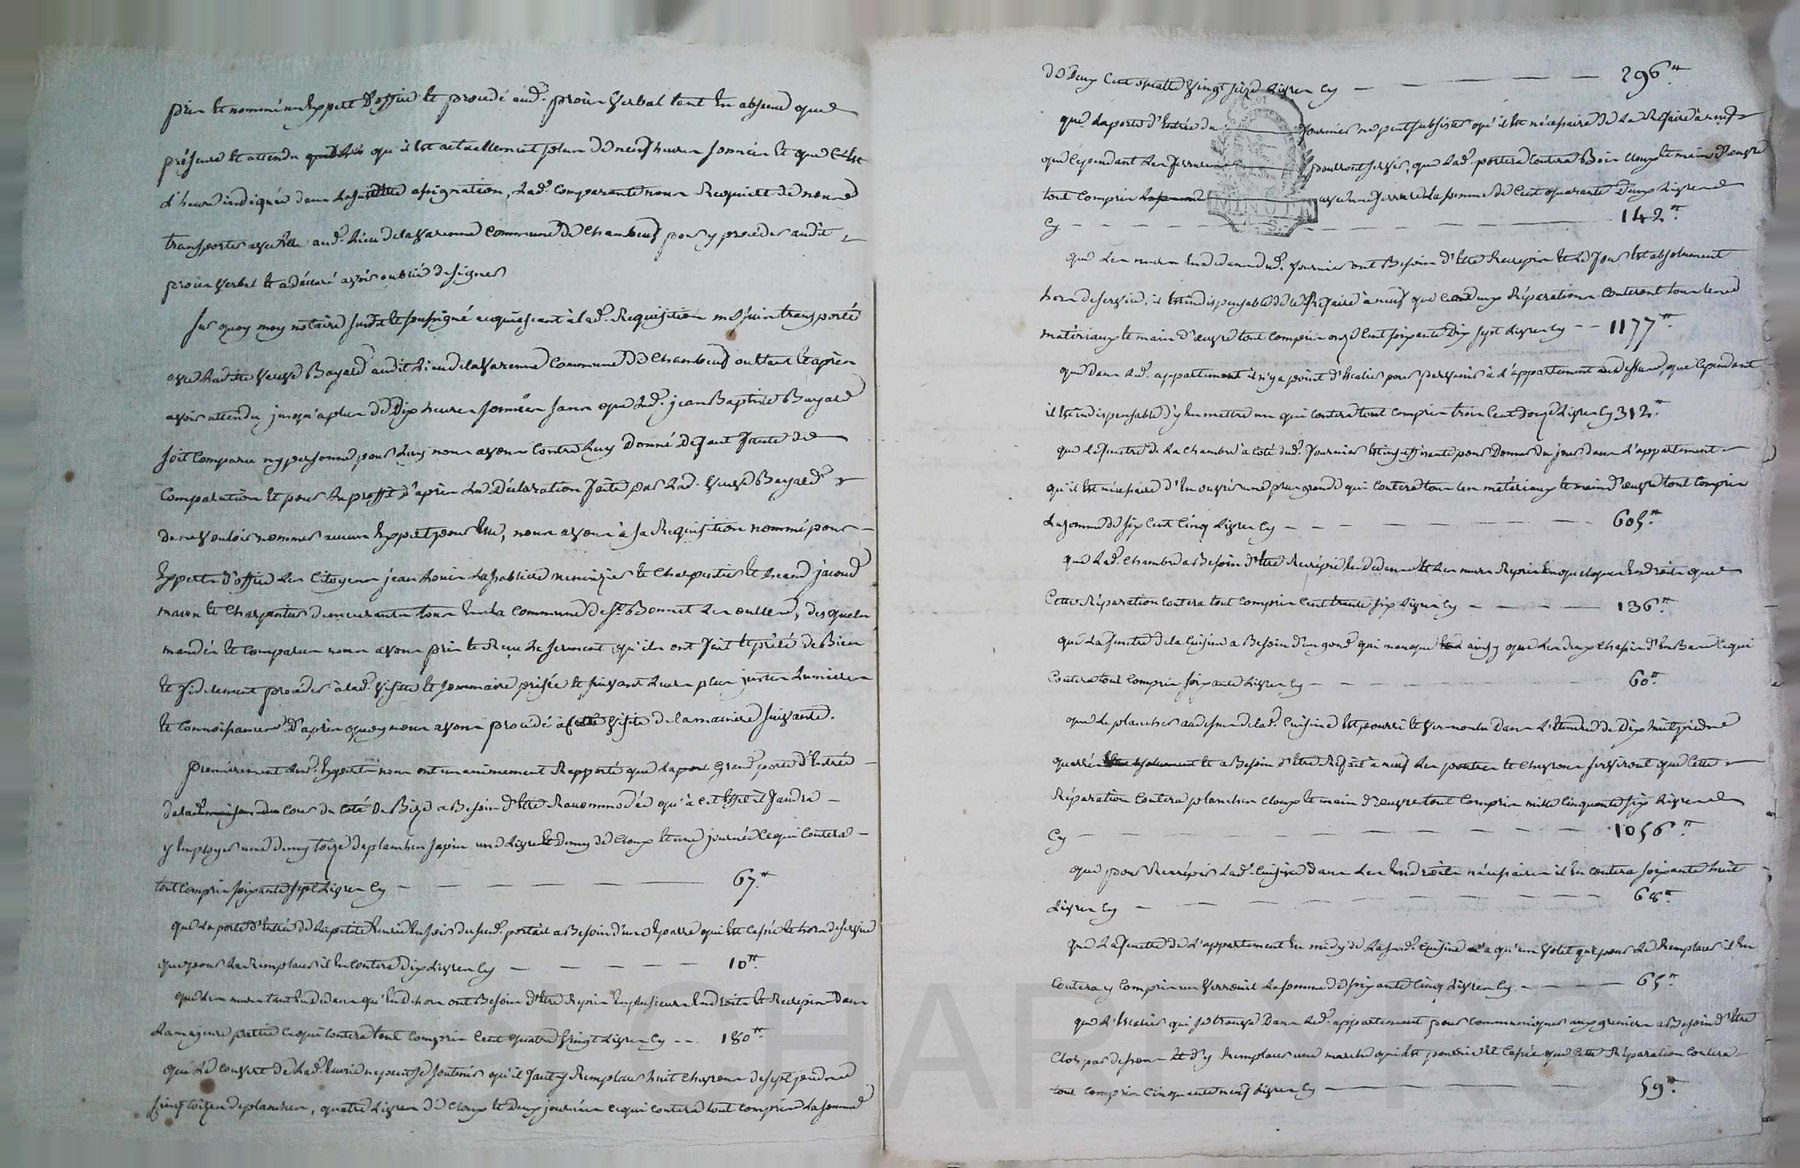 pris et nommé un Expert d'office et procédé aud. procès verbal tant En absence que
présence et attendu qu'il est actuellement plus de neuf heures sonnées et que C'est
l'heure indiquée dans laditte assignation, lad. Comparante nous Requiert de nous
transporter avec Elle aud. Lieu de la varenne Commune de Chambœuf pour y procéder audit
procès verbal et a déclaré avoir oublié de signer
Sur quoy moy notaire susdit et soussigné acquiesçant à lad. Requisition me suis transporté
avec laditte veuve Bayard audit Lieu de la varenne Commune de Chambœuf ou étant et après
avoir attendu jusqu'a plus de Dix heures sonnées sans que led. jean Baptiste Bayard
soit Comparu ny personne pour Luy nous avons Contre Luy Donné Défaut faute de
Comparution et pour le proffit d'après La Déclaration faite par Lad. veuve Bayard
de ne vouloir nommer aucun Expert pour Elle, nous avons à sa Requisition nommé pour
Experts d'office Les Citoyens jean Louis Lasablière menuizier et Charpentier et jacoud
masson et Charpentier demeurants tous En la Commune de St Bonnet Les oulles, Lesquels
mandés et Comparus nous avons pris et Reçu Le serment qu'ils ont fait et prêté de Bien
et fidelement procéder à lad. visitte et sommaire prisée et suivant Leurs plus justes Lumieres
et Connoissances D'après quoy nous avons procédé à Cette visite de la maniere suivante.
Premièrement Lesd. Experts nous ont unanimement Rapporté que la grande porte d'Entrée
de la Cour du Coté De Bize a Besoin d'être Racommodée qu'à cet Effet il faudra
y Employer une demy toize de planches sapin une Livre Et demy de Cloux et une journée Ce qui Coutera
tout Compris soixante sept Livres Cy 67.tt
que la porte d'Entrée de La petite Ecurie En soir du susd. portail a Besoin d'une Eparre qui Est Cassée et hors de service
que pour La Remplacer il En Coutera Dix Livres Cy 10.tt
que Les murs tant En dedans qu'En dehors ont Besoin d'être Repris En plusieurs Endroits et Recrepis Dans
La majeure partie Ce qui Coutera tout Compris Cent quatre vingt Livres Cy 180.tt
que Le Couvert de Lad. Ecurie ne peut se soutenir qu'il faut y Remplacer huit Chevrons de sept pieds
Cinq toizes de planches, quatre Livres de Cloux et Deux journées Ce qui Coutera tout Compris La somme
de Deux Cent quatre vingt seize Livres Cy 296.tt
que La porte d'Entrée du fournier ne peut subsister qu'il Est nécessaire de La Refaire à neuf
que Cependant Les ferrures pourront servir, que Lad. porte Coutera Bois Cloux et main d'œuvre
tout Compris avec une serrure La somme de Cent quarante Deux Livres
Cy 142.tt
MINUTE
que Les murs En dedans dud. fournier ont Besoin d'Etre Recrepis et Le four Est absolument
hors de service, il Est indispensable de Le Refaire à neuf que Ces deux Réparations Couteront tous les
matériaux et main d'œuvre tout Compris onze Cent soixante Dix sept Livres Cy 1177.tt
que dans Led. appartement il n'y a point d'Escalier pour parvenir à L'appartement au dessus, que Cependant
il Est indispensable d'y En mettre un qui Coutera tout Compris trois Cent Douze Livres Cy 312.tt
que La fenêtre de La Chambre à Coté dud. fournier Est insuffisante pour Donner du jour dans L'appartement
qu'il Est nécessaire d'En ouvrir une plus grande qui Coutera tous Les matériaux et main d'œuvre tout Compris
La somme de six Cent Cinq Livres Cy 605.tt
que Lad. Chambre a Besoin d'Etre Recrépie En dedans et Les murs Repris En quelques Endroits que
Cette Réparation Coutera tout Compris Cent trente six Livres Cy 136.tt
que La fenêtre de la Cuisine a Besoin d'un gond qui manque ainsy que Les deux Ce qui
Coutera tout Compris soixante Livres Cy 60.tt
que Le plancher au dessus de lad. Cuisine Est pourri et vermoulu Dans L'Etendue de Dix huit pieds
quarrés et a Besoin d'Etre Refait à neuf Les poutres et Chevrons serviront que Cette
Réparation Coutera planches Cloux et main d'œuvre tout Compris mille Cinquante six Livres
Cy 1056.tt
que pour Recrépir Lad. Cuisine Dans Les Endroits nécessaires il En Coutera soixante huit
Livres Cy 68.tt
que La fenêtre de L'appartement En midy de La susd. Cuisine n'a qu'un volet que pour Le Remplacer il En
Coutera y Compris un verrouil La somme de soixante Cinq Livres Cy 65.tt
que L'Escalier qui se trouve Dans Led. appartement pour Communiquer aux greniers a Besoin d'Etre
Clos par dessous Et d'y Remplacer une marche qui Est pourrie Et Cassée que Cette Réparation Coutera
tout Compris Cinquante neuf Livres Cy 59.tt